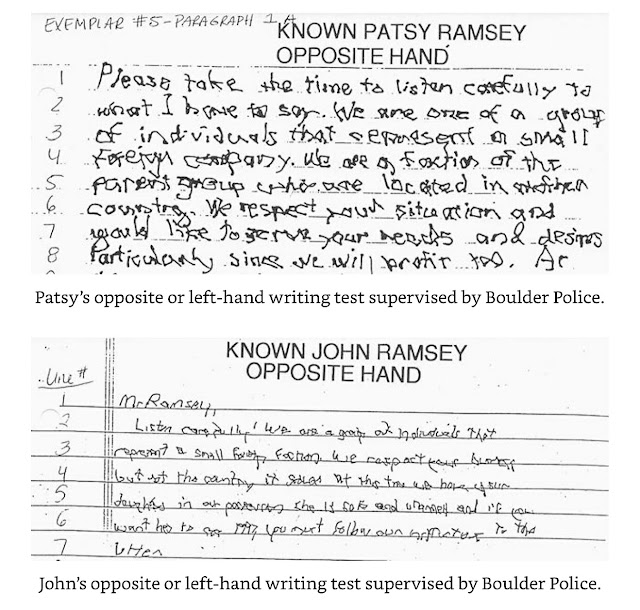 EXEMPLAR #5-PARAGRAPH 1A
KNOWN PATSY RAMSEY
OPPOSITE HAND
1 Please take the time to listen carefully to
2 what I have to say. We are one of a group
3 of individuals that represent a small
4 foreign company. We are a faction of the
5 parent group who are located in another
6 country. We respect your situation and
7 would like to serve your needs and desires
8 Particularly since we will profit too.
Patsy's opposite or left-hand writing test supervised by Boulder Police.
KNOWN JOHN RAMSEY
OPPOSITE HAND
Line #
1 Mr Ramsey,
2 Listen carefully! We are a group of individuals that
3 represent a small faction. We respect your
4 but not the country it At this time we have your
5 daughter in our she is safe and and if you
6 want her to see 1997, you must follow our to the
7 letter
John's opposite or left-hand writing test supervised by Boulder Police.